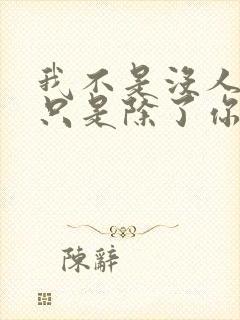 我不是沒人
只是除了你
陳辭